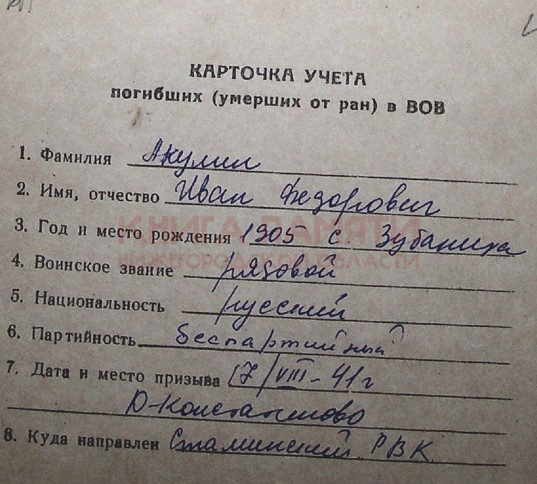 КАРТОЧКА УЧЕТА
погибших (умерших от ран) в ВОВ
1. Фамилия Акулин
2. Имя, отчество Иван Федорович
3. Год и место рождения 1905 с Зубаниха
КНИГА ПАМЯТИ
НИЖЕГОРОДСКОЙ ОБЛАСТИ
4. Воинское звание рядовой
5. Национальность русский
6. Партийность беспартийный
7. Дата и место призыва 17/VIII-41г
Д-Константиново
8. Куда направлен Сталинский РВК